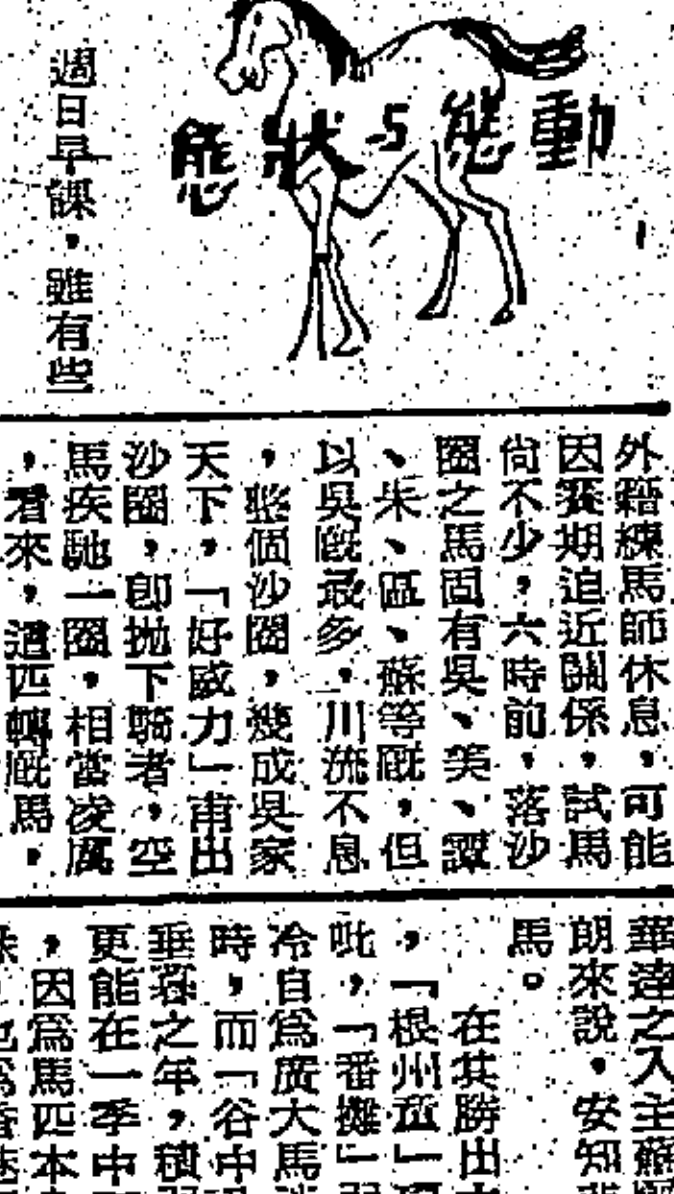 動態与狀態
週日早課，雖有些
外籍練馬師休息，可能
因賽期迫近關係，試馬
尚不少，六時前，落沙
圈之馬固有吳、美、譚
、朱、區、蘇等廐，但
以吳廐最多，川流不息
，整個沙圈，幾成吳家
天下，「好威力」甫出
沙圈，即拋下騎者，空
馬疾馳一圈，相當凌厲
，看來，這匹轉廐馬，
華達之入主蘇
朗來說，安知非
馬。
在其勝出
，「根州
吡，「番攤」
冷自為廣大馬
時，而「谷中
垂暮之年，積
更能在一季中
，因為馬匹本